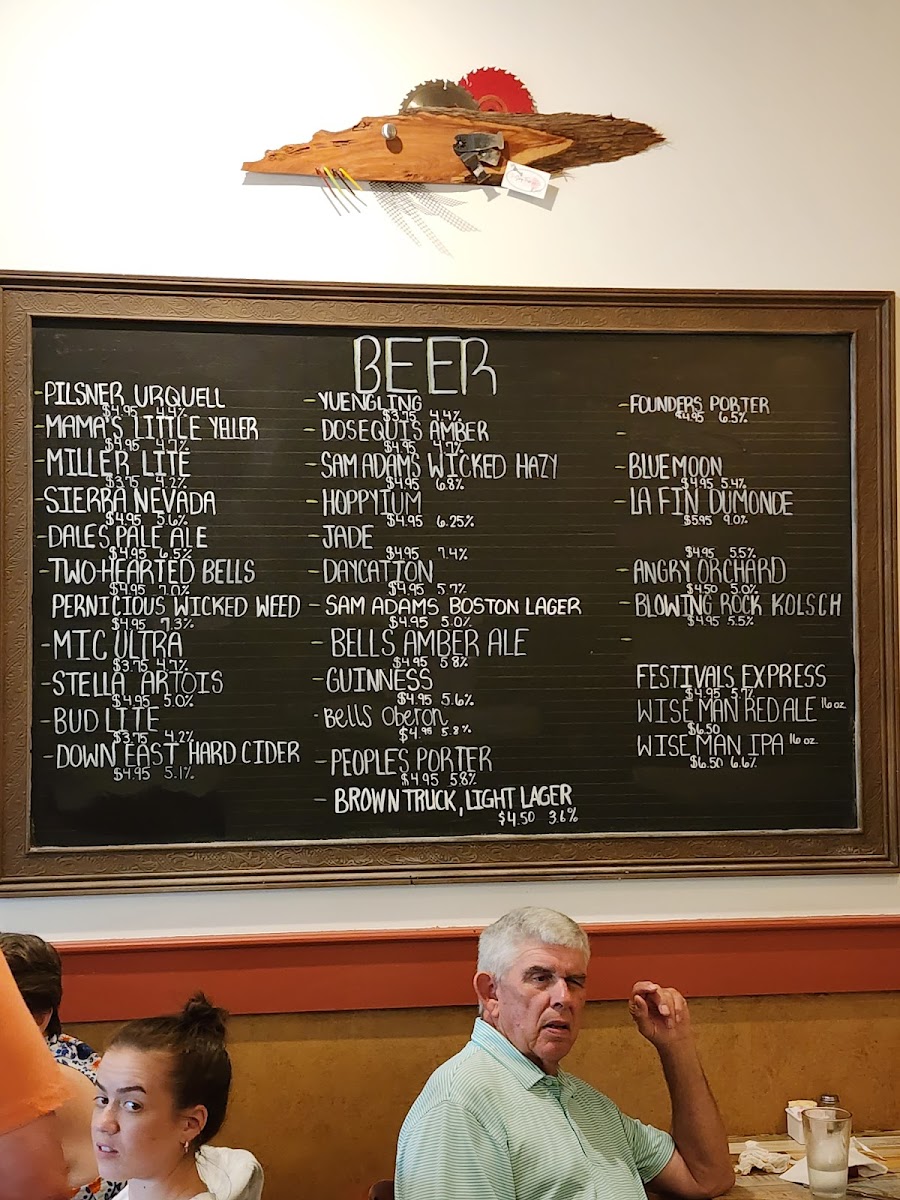 BEER
-PILSNER URQUELL
$4.95 4.4%
-MAMA'S LITTLE YELLER
$4.95 4.7%
-MILLER LITE
$3.75 4.2%
-SIERRA NEVADA
$4.95 5.6%
-DALES PALE ALE
$4.95 6.5%
-TWO-HEARTED BELLS
$4.95 7.0%
PERNICIOUS WICKED WEED
$4.95 7.3%
-MIC ULTRA
$3.75 4.7%
-STELLA ARTOIS
$4.95 5.0%
-BUD LITE
$3.75 4.2%
-DOWN EAST HARD CIDER
$4.95 5.1%
-YUENGLING
$3.75 4.4%
-DOS EQUIS AMBER
$4.95 4.7%
-SAM ADAMS WICKED HAZY
$4.95 6.8%
-HOPPYIUM
$4.95 6.25%
-JADE
$4.95 7.4%
-DAYCATION
$4.95 5.7%
-SAM ADAMS BOSTON LAGER
$4.95 5.0%
-BELLS AMBER ALE
$4.95 5.8%
-GUINNESS
$4.95 5.6%
-Bells Oberon
$4.95 5.8%
-PEOPLES PORTER
$4.95 5.8%
-BROWN TRUCK, LIGHT LAGER
$4.50 3.6%
-FOUNDERS PORTER
$4.95 6.5%
-
-BLUE MOON
$4.95 5.4%
-LA FIN DUMONDE
$5.95 9.0%
$4.95 5.5%
-ANGRY ORCHARD
$4.50 5.0%
-BLOWING ROCK KOLSCH
$4.95 5.5%
-
FESTIVALS EXPRESS
$4.95 5.7%
WISE MAN RED ALE 16 oz
$6.50
WISE MAN IPA 16 oz.
$6.50 6.6%